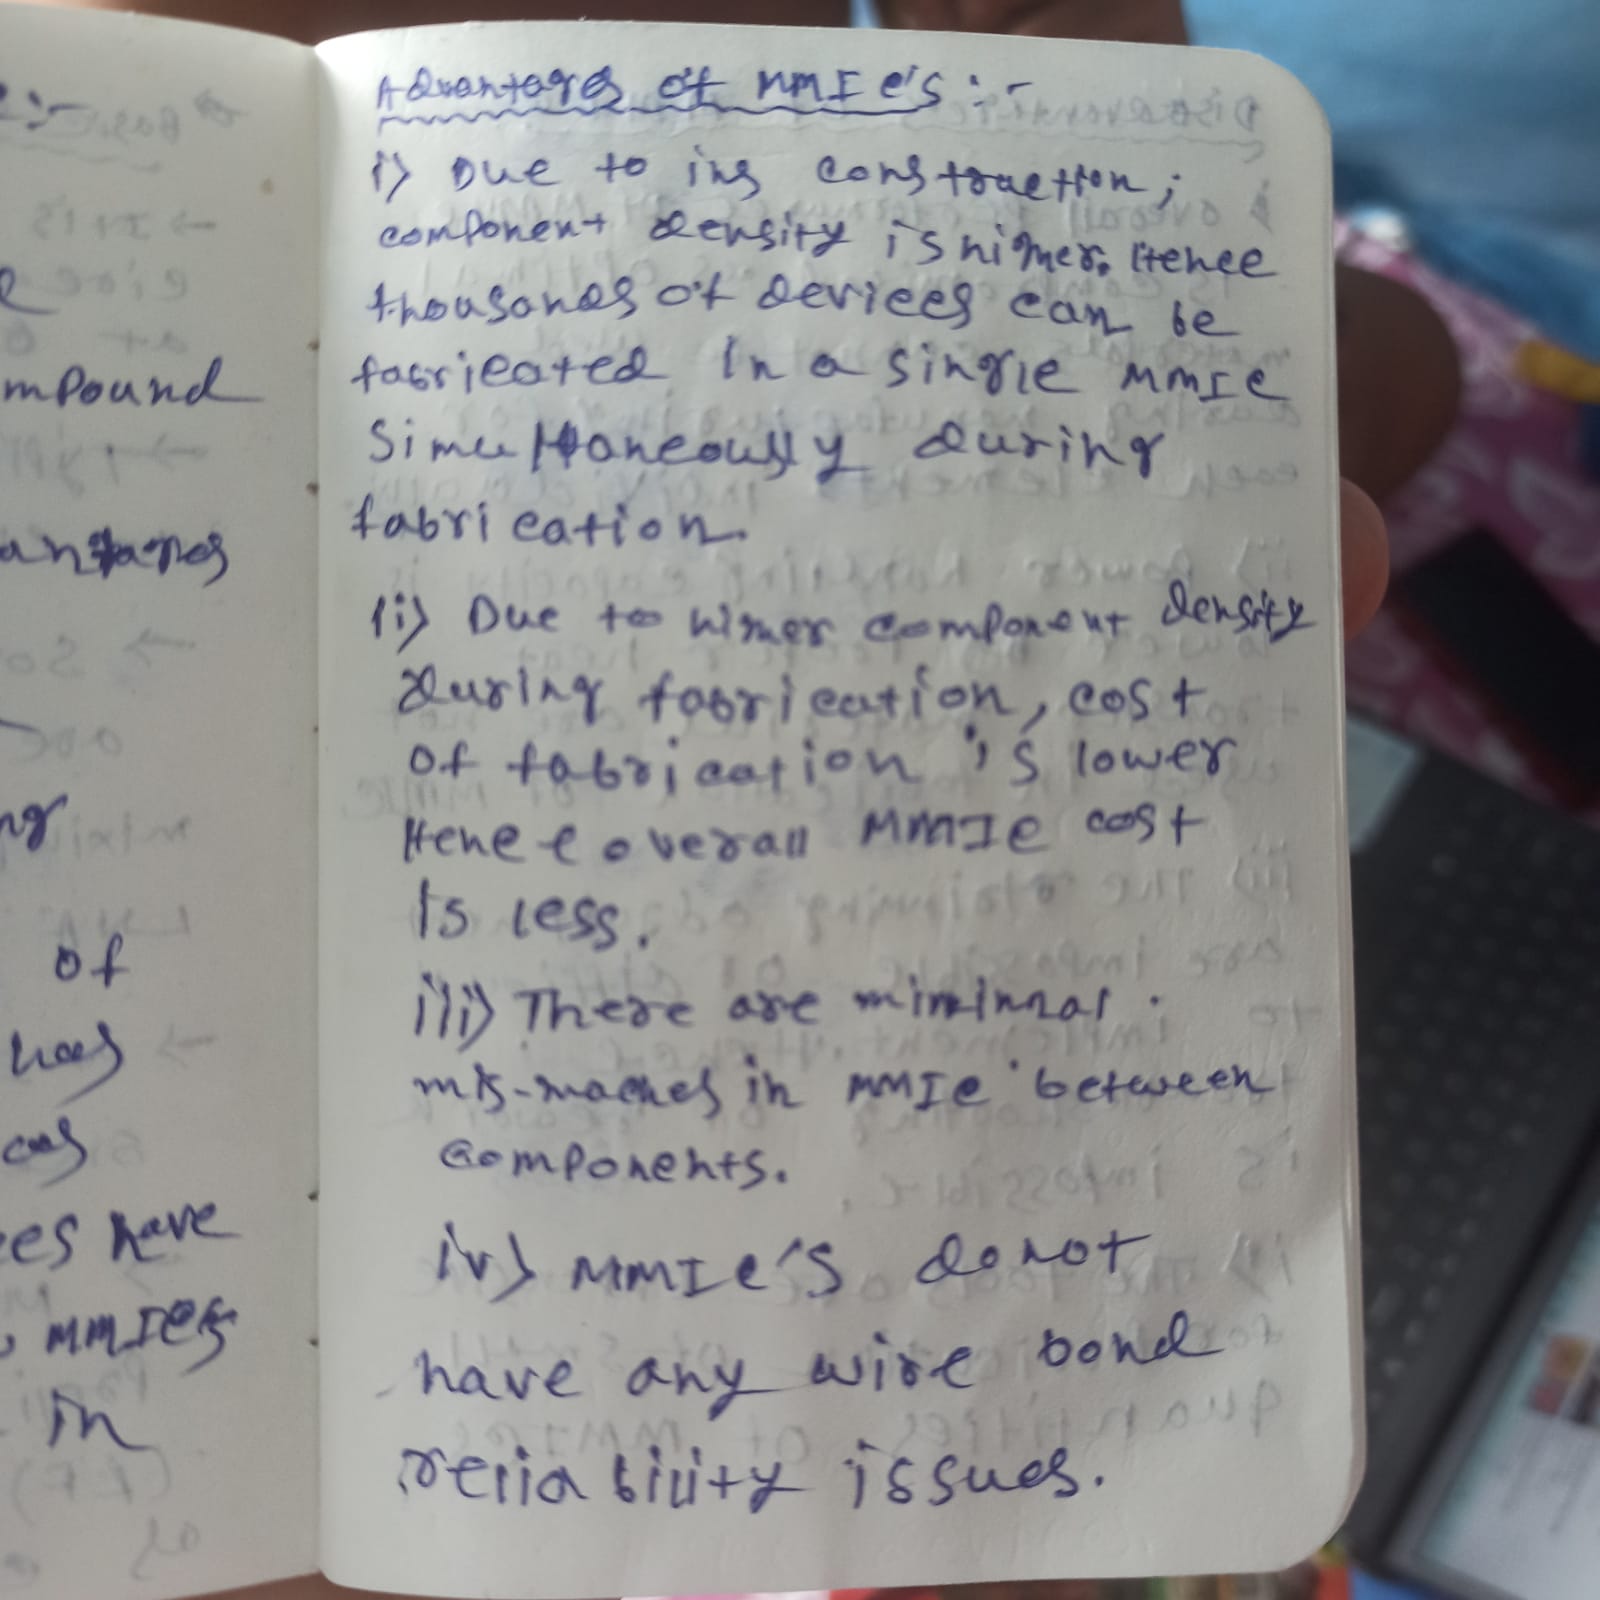 Advantages of MMIC's :-
i) Due to its construction,
component density is higher. Hence
thousands of devices can be
fabricated in a single MMIC
Simultaneously during
fabrication.
ii) Due to higher component density
during fabrication, cost
of fabrication is lower
Hence overall MMIC cost
is less.
iii) There are minimal
mis-maches in MMIC between
components.
iv) MMIC's do not
have any wire bond
reliability issues.
mpound
ng
of
has
ces have
MMICs
in